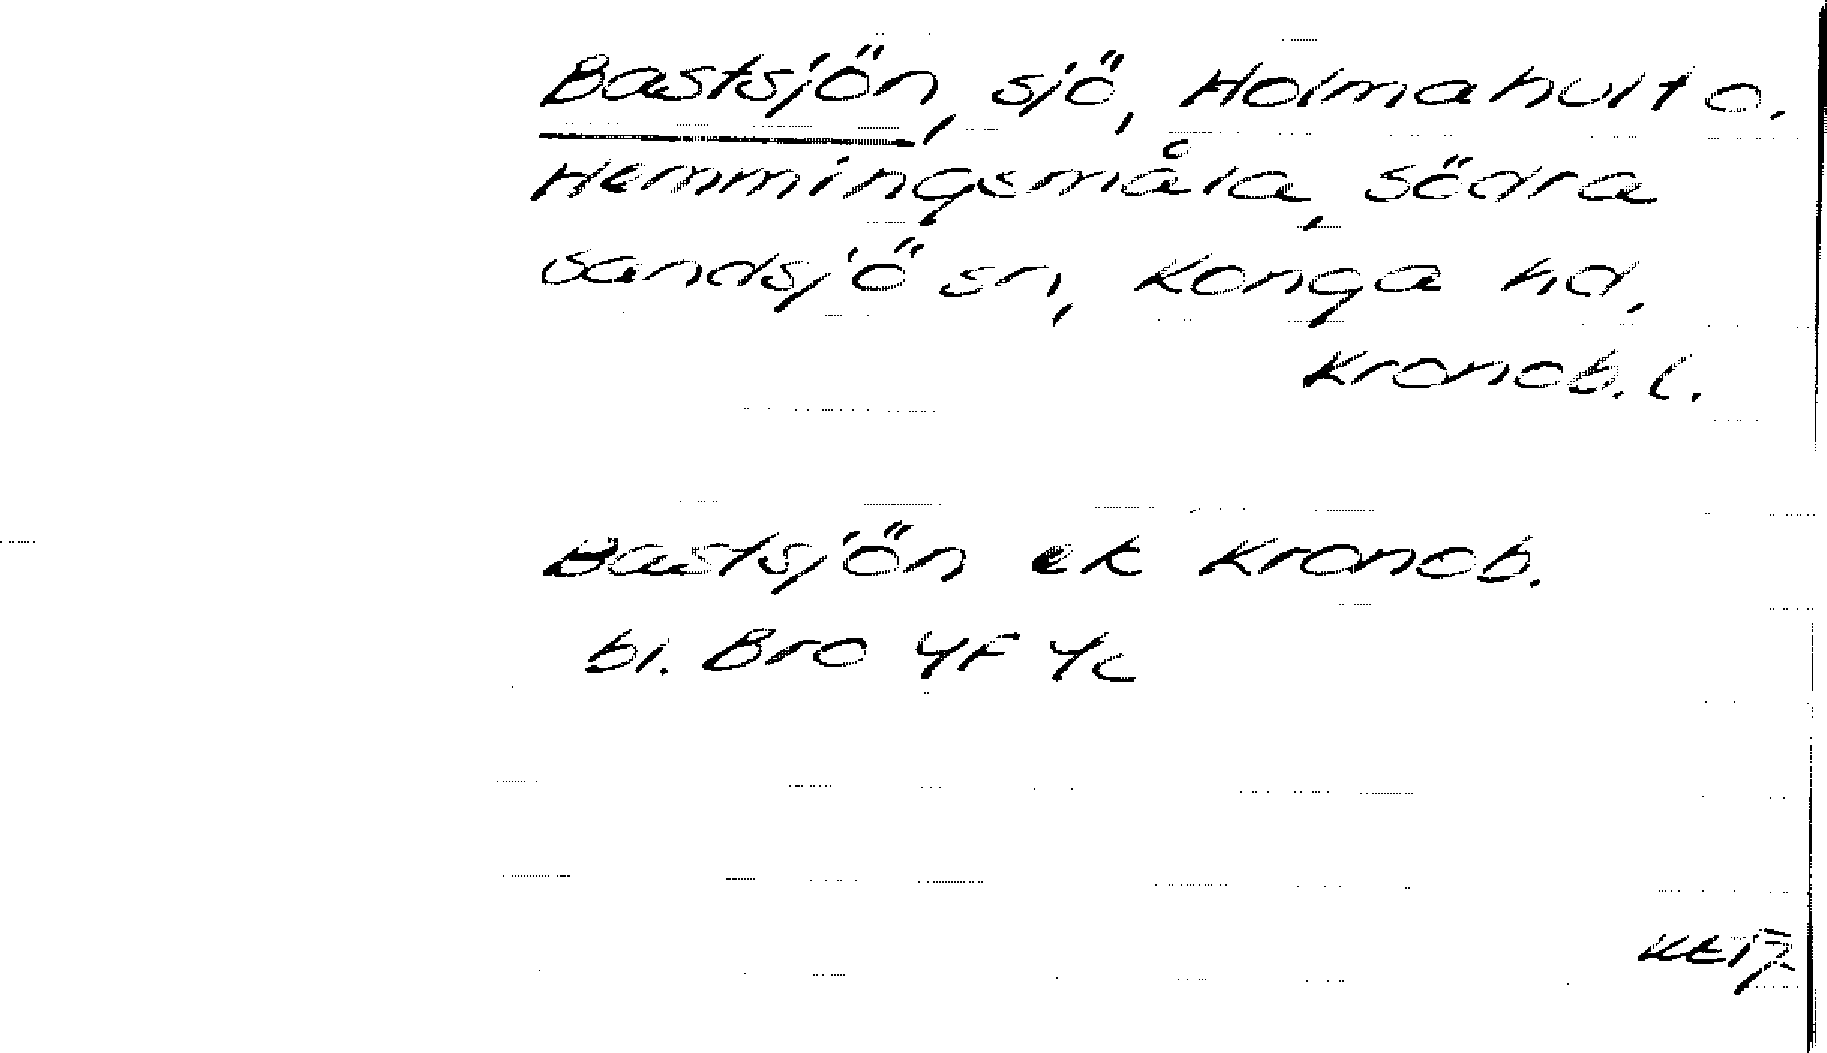 Bastsjön, sjö, Holmahult o.
Hemmingsmåla, Södra
Sandsjö sn, Konga hd,
Kronob. l.
Bastsjön ek Kronob.
bl. Bro 4F 4c